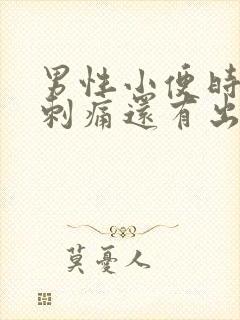 男性小便時
刺痛還有出
莫憂人